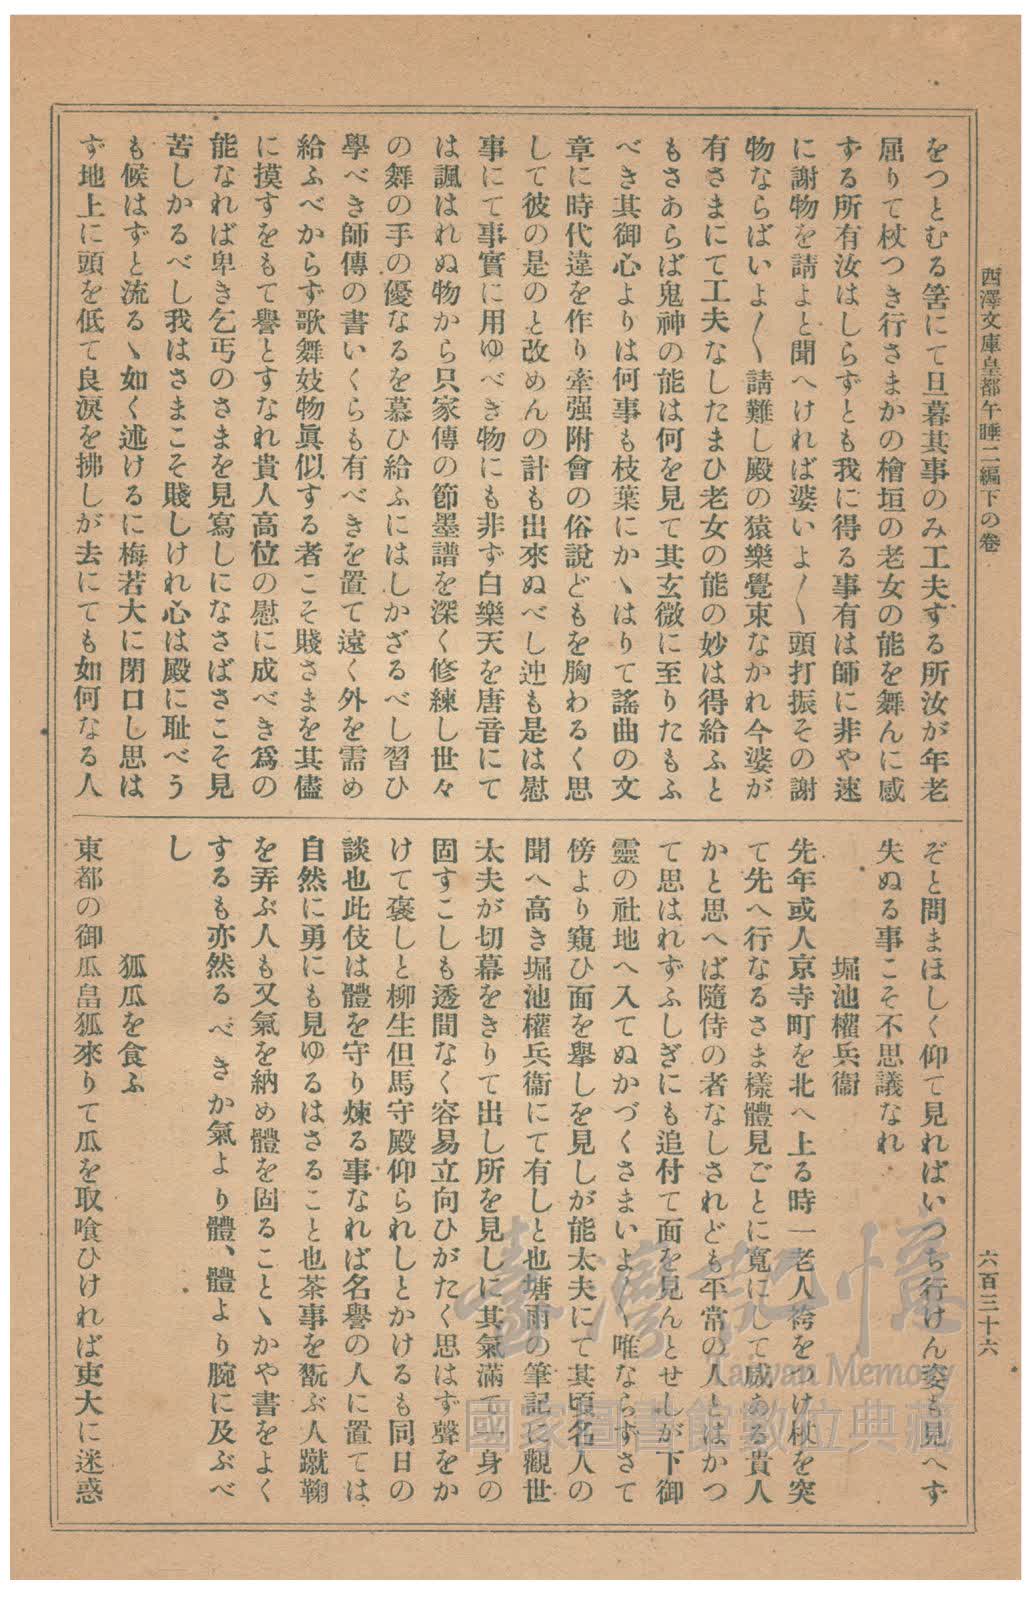 西澤文庫皇都午睡二編下の卷
六百三十六
をつとむる筈にて旦暮其事のみ工夫する所汝が年老
屈りて杖つき行さまかの檜垣の老女の能を舞んに感
ずる所有汝はしらずとも我に得る事有は師に非や速
に謝物を請よと聞へければ婆いよ〳〵頭打振その謝
物ならばいよ〳〵請難し殿の猿樂覺束なかれ今婆が
有さまにて工夫なしたまひ老女の能の妙は得給ふと
もさあらば鬼神の能は何を見て其玄微に至りたもふ
べき其御心よりは何事も枝葉にかゝはりて謠曲の文
章に時代違を作り牽强附會の俗説どもを胸わるく思
して彼の是のと改めんの計も出來ぬべし迚も是は慰
事にて事實に用ゆべき物にも非ず白樂天を唐音にて
は諷はれぬ物から只家傳の節墨譜を深く修練し世々
の舞の手の優なるを慕ひ給ふにはしかざるべし習ひ
學べき師傳の書いくらも有べきを置て遠く外を需め
給ふべからず歌舞妓物眞似する者こそ賤さまを其儘
に摸すをもて譽とすなれ貴人高位の慰に成べき爲の
能なれば卑き乞丐のさまを見寫しになさばさこそ見
苦しかるべし我はさまこそ賤しけれ心は殿に耻べう
も候はずと流るゝ如く述けるに梅若大に閉口し思は
ず地上に頭を低て良淚を拂しが去にても如何なる人
ぞと問まほしく仰て見ればいつち行けん姿も見へず
失ぬる事こそ不思議なれ
堀池權兵衞
先年或人京寺町を北へ上る時一老人袴をつけ杖を突
て先へ行なるさま樣體見ごとに寬にして威ある貴人
かと思へば隨侍の者なしされども平常の人とはかつ
て思はれずふしぎにも追付て面を見んとせしが下御
靈の社地へ入てぬかづくさまいよ〳〵唯ならずさて
傍より窺ひ面を擧しを見しが能太夫にて其頃名人の
聞へ高き堀池權兵衞にて有しと也塘雨の筆記に觀世
太夫が切幕をきりて出し所を見しに其氣滿て一身の
固すこしも透間なく容易立向ひがたく思はず聲をか
けて褒しと柳生但馬守殿仰られしとかけるも同日の
談也此伎は體を守り煉る事なれば名譽の人に置ては
自然に勇にも見ゆるはさること也茶事を翫ぶ人蹴鞠
を弄ぶ人も又氣を納め體を固ることゝかや書をよく
するも亦然るべきか氣より體、體より腕に及ぶべ
し
狐瓜を食ふ
東都の御瓜畠狐來りて瓜を取喰ひければ吏大に迷惑
臺灣記憶
Taiwan Memory
國家圖書館數位典藏